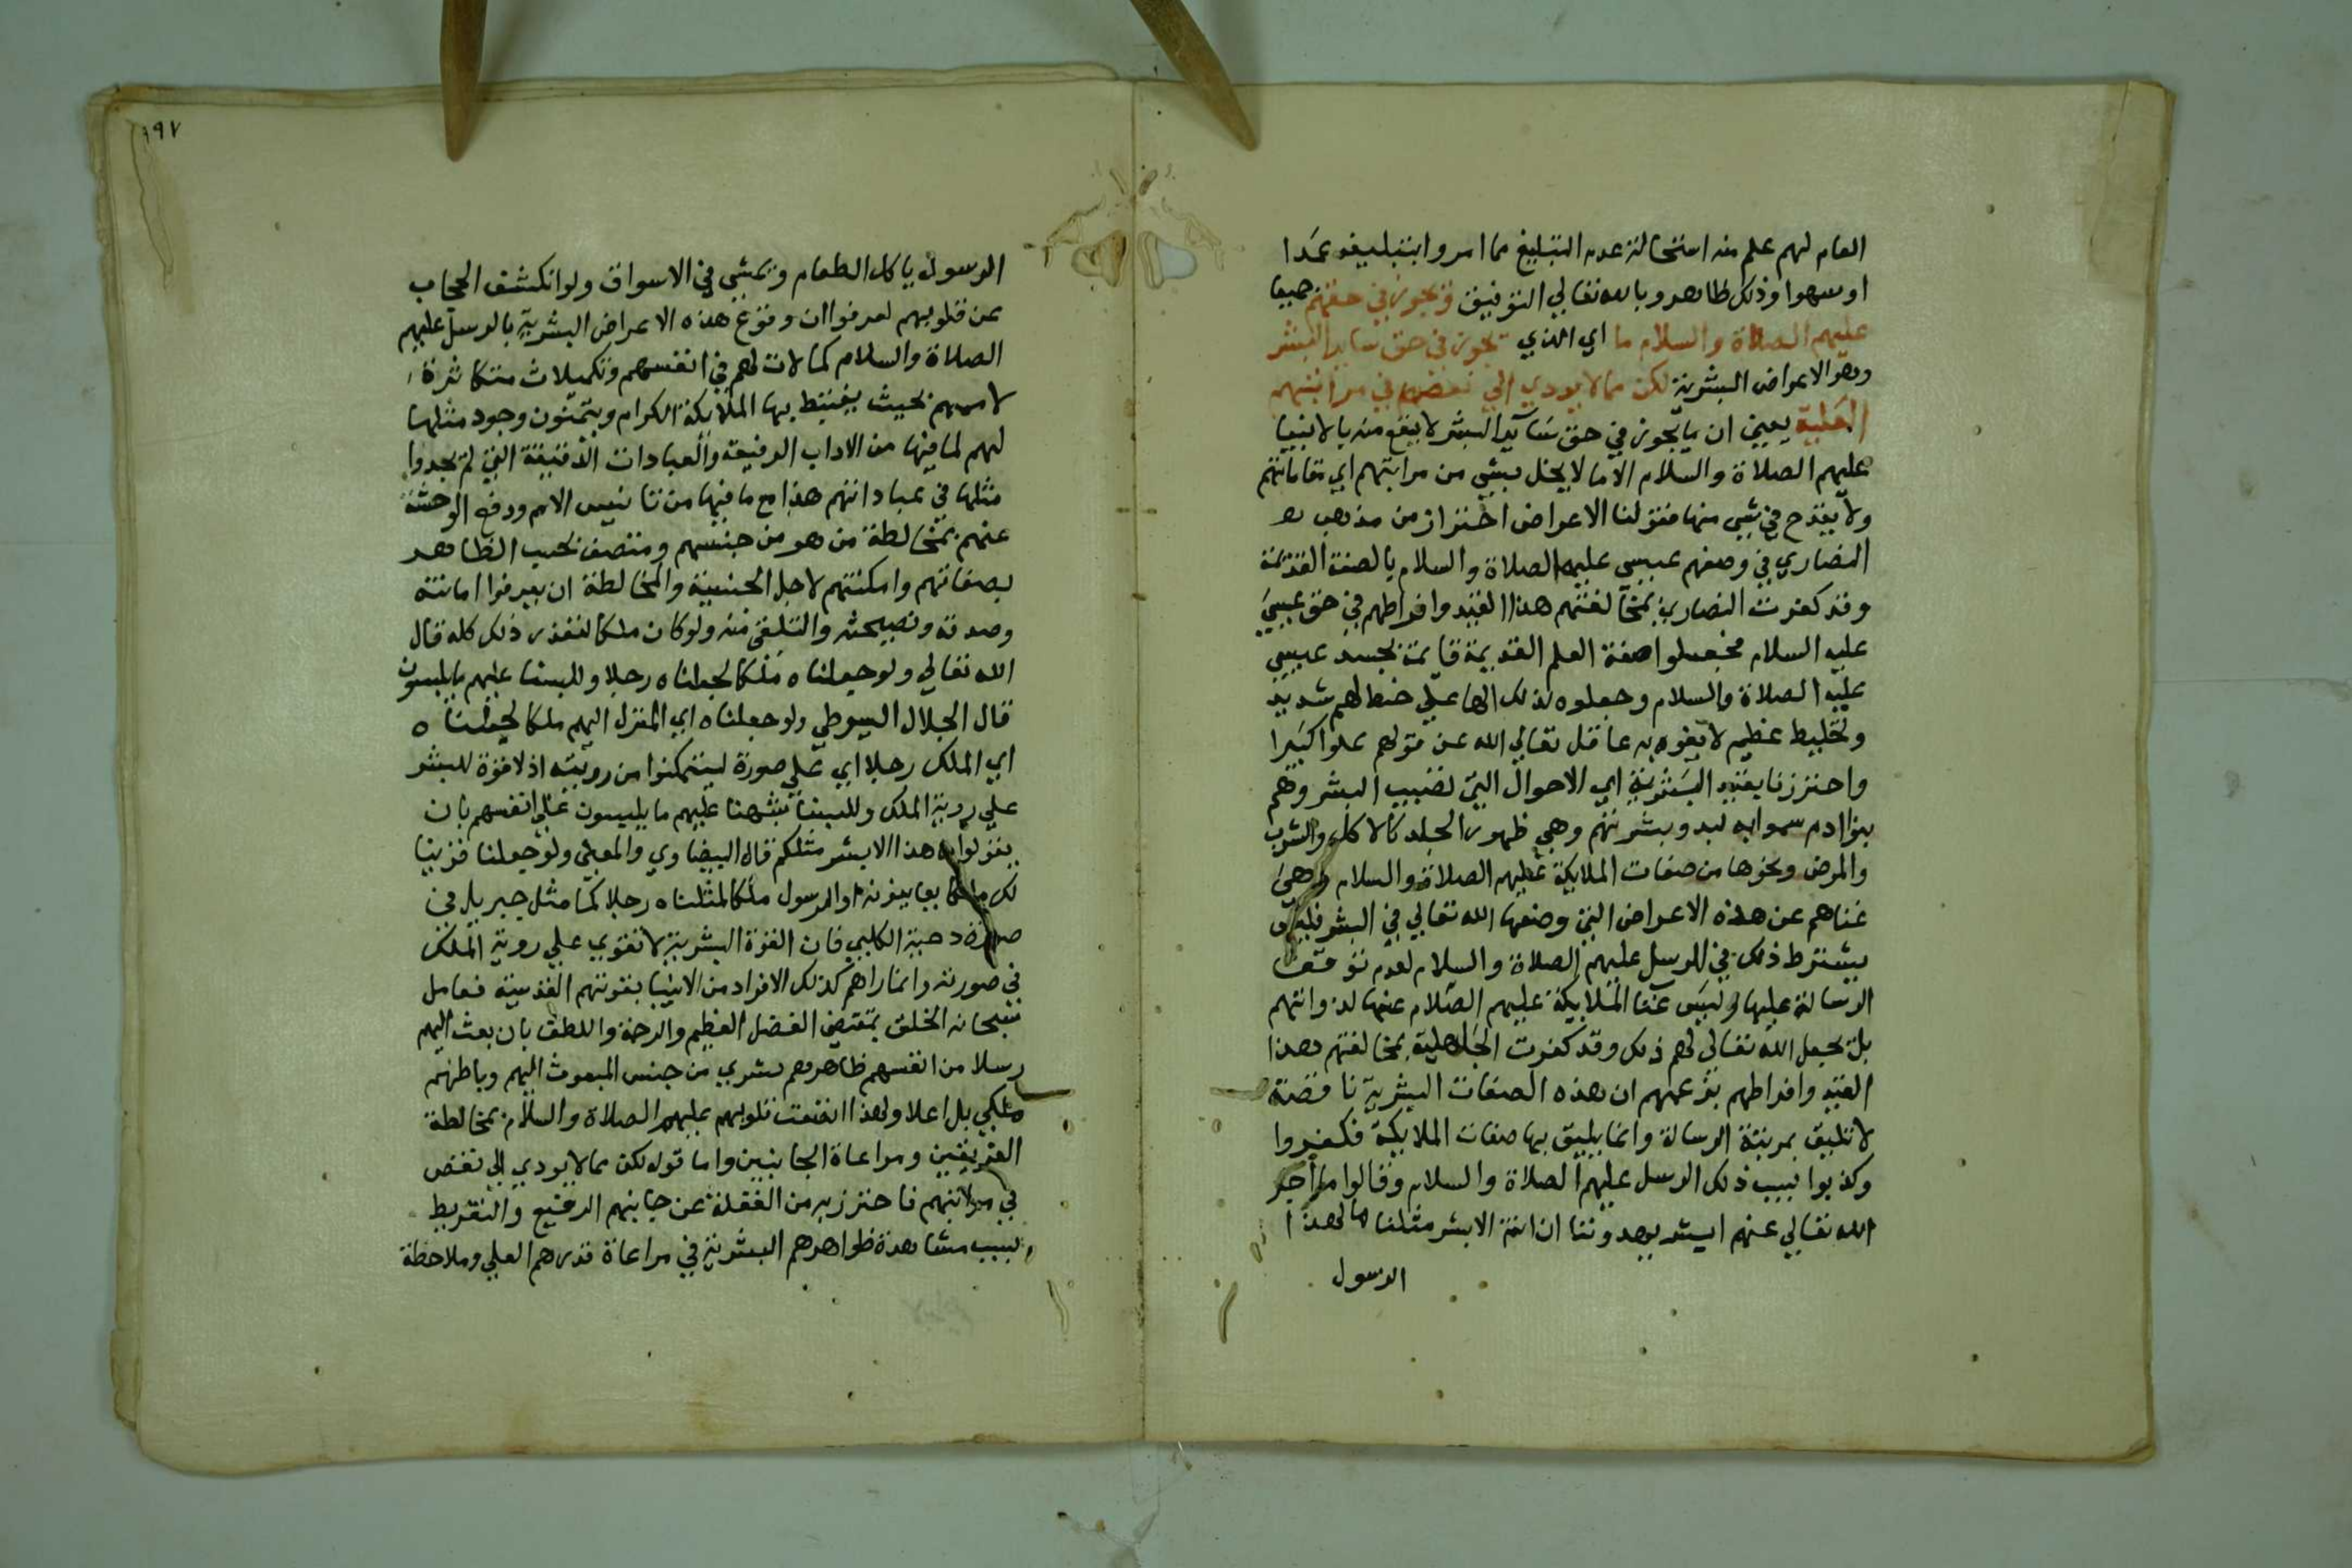 العام لهم علم منه استحالة عدم التبليغ مما امروا بتبليغه عمدا
او سهوا وذلك ظاهر وبالله تعالي التوفيق ويجوز في حقهم جميعا
عليهم الصلاة والسلام ما اي الذي يجوز في حق ساير البشر
وهو الاعراض البشرية لكن مما لا يودي الي نقصهم في مراتبهم
العلية يعني ان ما يجوز في حق ساير البشر لا يقع منه بالانبيا
عليهم الصلاة والسلام الا ما لا يخل بشي من مراتبهم اي مقاماتهم
ولا يقدح في شي منها فقولنا الاعراض احتراز من مذهب
النصاري في وصفهم عيسي عليه الصلاة والسلام بالصفة القديمة
وقد كفرت النصاري بمخالفتهم هذا القيد وافراطهم في حق عيسي
عليه السلام فجعلوا صفة العلم القديمة قايمة بجسد عيسي
عليه الصلاة والسلام وجعلوه لذلك الها علي خبط لهم شديد
وتخليط عظيم لا يفوه به عاقل تعالي الله عن قولهم علوا كبيرا
واحترزنا بقيد البشرية اي الاحوال التي تصيب البشر وهم
بنوا ادم سموا به لبدو بشرتهم وهي ظهور الجلد كالاكل والشرب
والمرض ونحوها من صفات الملايكة عليهم الصلاة والسلام وهي
غناهم عن هذه الاعراض التي وضعها الله تعالي في البشر فليس
يشترط ذلك في الرسل عليهم الصلاة والسلام لعدم توقف
الرسالة عليها وليس غنا الملايكة عليهم السلام عنها لذواتهم
بل بجعل الله تعالي لهم ذلك وقد كفرت الجاهلية بمخالفتهم هذا
القيد وافراطهم بزعمهم ان هذه الصفات البشرية ناقصة
لا تليق بمرتبة الرسالة وانما يليق بها صفات الملايكة فكفروا
وكذبوا بسبب ذلك الرسل عليهم الصلاة والسلام وقالوا ما اخبر
الله تعالي عنهم ابشر يهدوننا ان انتم الا بشر مثلنا مال هذا
الرسول
١٩٧
الرسول ياكل الطعام ويمشي في الاسواق ولو انكشف الحجاب
عن قلوبهم لعرفوا ان وقوع هذه الاعراض البشرية بالرسل عليهم
الصلاة والسلام كمالات لهم في انفسهم وتكميلات متكاثرة
لاممهم بحيث يغتبط بها الملايكة الكرام ويتمنون وجود مثلها
لهم لما فيها من الاداب الرفيعة والعبادات الدقيقة التي لم يجدوا
مثلها في عباداتهم هذا مع ما فيها من تانيس الامم ودفع الوحشة
عنهم بمخالطة من هو من جنسهم ومتصف بحسب الظاهر
بصفاتهم وامكنتهم لاجل الجنسية والمخالطة ان يعرفوا امانته
وصدقه ونصيحته والتلقي منه ولو كان ملكا لتعذر ذلك كله قال
الله تعالي ولو جعلناه ملكا لجعلناه رجلا وللبسنا عليهم ما يلبسون
قال الجلال السيوطي ولو جعلناه اي المنزل اليهم ملكا لجعلناه
اي الملك رجلا اي علي صورة ليتمكنوا من رويته اذ لا قوة للبشر
علي روية الملك وللبسنا شبهنا عليهم ما يلبسون علي انفسهم بان
يقولوا ما هذا الا بشر مثلكم قال البيضاوي والمعني ولو جعلنا قرينا
لك ملكا يعاينونه او الرسول ملكا لمثلناه رجلا كما مثل جبريل في
صورة دحية الكلبي فان القوة البشرية لا تقوي علي روية الملك
في صورته وانما راهم كذلك الافراد من الانبيا بقوتهم القدسية فعامل
سبحانه الخلق بمقتضي الفضل العظيم والرحمة واللطف بان بعث اليهم
رسلا من انفسهم ظاهرهم بشري من جنس المبعوث اليهم وباطنهم
ملكي بل اعلا ولهذا اتفقت قلوبهم عليهم الصلاة والسلام بمخالطة
الفريقين ومراعاة الجانبين واما قوله لكن مما لا يودي الي نقص
في مراتبهم فاحترز به من الغفلة عن جانبهم الرفيع والتفريط
بسبب مشاهدة ظواهرهم البشرية في مراعاة قدرهم العلي وملاحظة